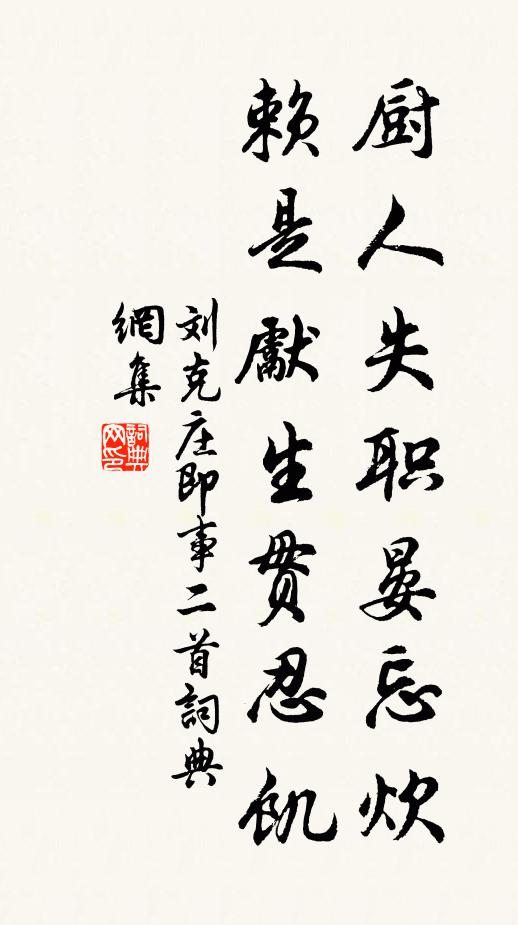 厨人失职晏忘炊
赖是獻生贯忍飢
刘克庄即事二首詞典
網集
詞典
网印